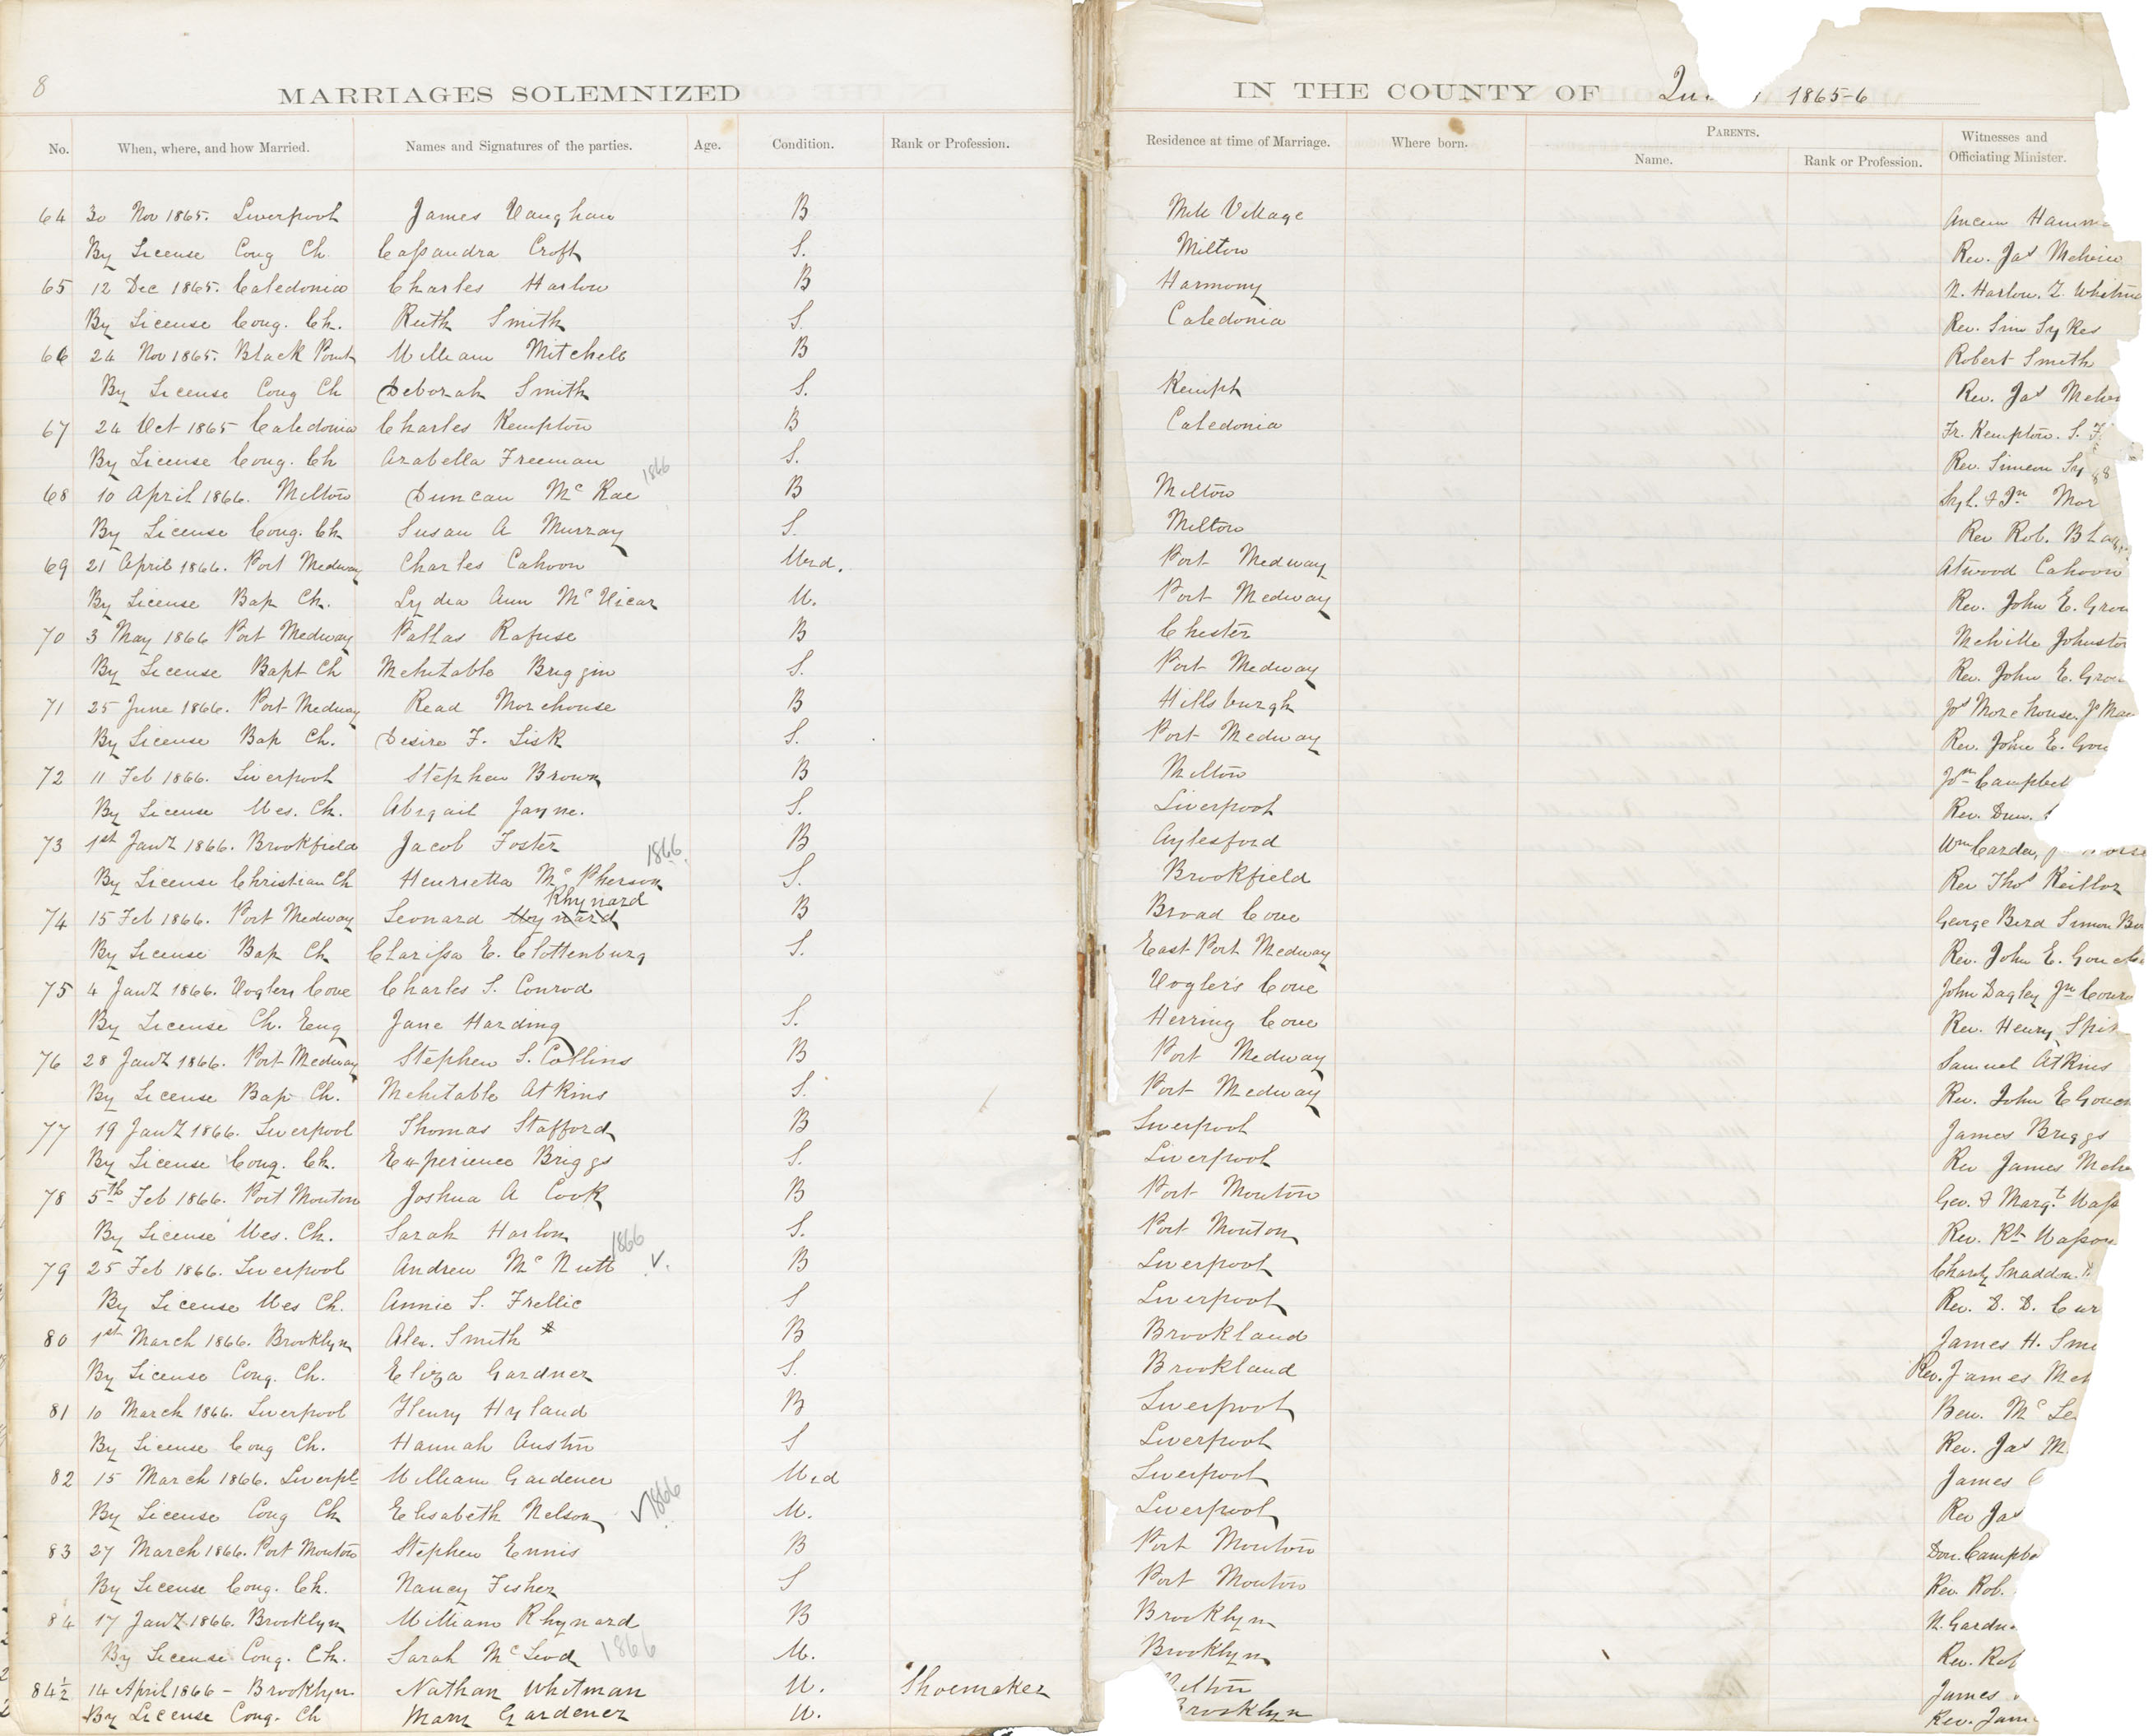 8
MARRIAGES SOLEMNIZED IN THE COUNTY OF 1865-6
No. When, where, and how Married. Names and Signatures of the parties. Age. Condition. Rank or Profession. Residence at time of Marriage. Where born. PARENTS. Name. Rank or Profession. Witnesses and Officiating Minister.
64 30 Nov 1865. Liverpool James Vaughan B Mill Village
By License Cong Ch. Cassandra Croft S. Milton Rev. Jas
65 12 Dec 1865. Caledonia Charles Harlow B Harmony N. Harlow.
By License Cong. Ch. Ruth Smith S Caledonia Rev. Sim Sykes
66 24 Nov 1865. Black Point William Mitchell B Robert Smith
By License Cong Ch Deborah Smith S. Kempt Rev. Jas
67 24 Oct 1865 Caledonia Charles Kempton B Caledonia Fr. Kempton. S. F
By License Cong. Ch Arabella Freeman S. Rev. Simeon Sy
1866
68 10 April 1866. Milton Duncan Mc Rae B Milton
By License Cong. Ch Susan A Murray S. Milton Rev Rob.
69 21 April 1866. Port Medway Charles Cahoon Wid. Port Medway Atwood Cahoon
By License Bap Ch. Lydia Ann Mc Vicar W. Port Medway Rev. John E.
70 3 May 1866 Port Medway Pallas Rafuse B Chester Melville Johnston
By License Bapt Ch Mehitable Briggin S. Port Medway Rev. John E.
71 25 June 1866. Port Medway Read Morehouse B Hillsburgh Jos Morehouse,
By License Bap Ch. Desire F. Lisk S. Port Medway Rev. John E.
72 11 Feb 1866. Liverpool Stephen Brown B Milton Jno Campbell
By License Wes. Ch. Abigail Jayne. S. Liverpool Rev.
73 1st Jany 1866. Brookfield Jacob Foster B Aylesford Wm Carder,
1866.
By License Christian Ch Henrietta Mc Pherson S. Brookfield Rev Thos Reillor
Rhynard
74 15 Feb 1866. Port Medway Leonard Hynard B Broad Cove George Bird Simon
By License Bap Ch Clarissa E. Clottenburg S. East Port Medway Rev. John E.
75 4 Jany 1866. Voglers Cove Charles S. Conrod Vogler's Cove John Dagley
By License Ch. Eng Jane Harding S. Herring Cove Rev. Henry
76 28 Jany 1866. Port Medway Stephen S. Collins B Port Medway Samuel Atkins
By License Bap Ch. Mehitable Atkins S. Port Medway Rev. John E
77 19 Jany 1866. Liverpool Thomas Stafford B Liverpool James Briggs
By License Cong. Ch. Experience Briggs S. Liverpool Rev James
78 5th Feb 1866. Port Mouton Joshua A Cook B Port Mouton Geo. & Margt
By License Wes. Ch. Sarah Harlow S. Port Mouton Rev.
1866
79 25 Feb 1866. Liverpool Andrew Mc Nutt B Liverpool Charly Snaddon.
By License Wes Ch. Annie S. Frellic S Liverpool Rev. D. D.
80 1st March 1866. Brooklyn Alex. Smith B Brookland James H.
By License Cong. Ch. Eliza Gardner S. Brookland Rev. James
81 10 March 1866. Liverpool Henry Hyland B Liverpool Ben. Mc
By License Cong Ch. Hannah Austin S Liverpool Rev. Jas
82 15 March 1866. Liverpl William Gardener Wid Liverpool James
By License Cong Ch Elisabeth Nelson W. Liverpool Rev Jas
1866
83 27 March 1866. Port Mouton Stephen Ennis B Port Mouton Don.
By License Cong. Ch. Nancy Fisher S Port Mouton Rev. Rob.
84 17 Jany 1866. Brooklyn William Rhynard B Brooklyn N.
By License Cong. Ch. Sarah Mc Leod 1866 W. Brooklyn Rev.
84½ 14 April 1866 - Brooklyn Nathan Whitman W. Shoemaker James
By License Cong. Ch Mary Gardener W. Rev.